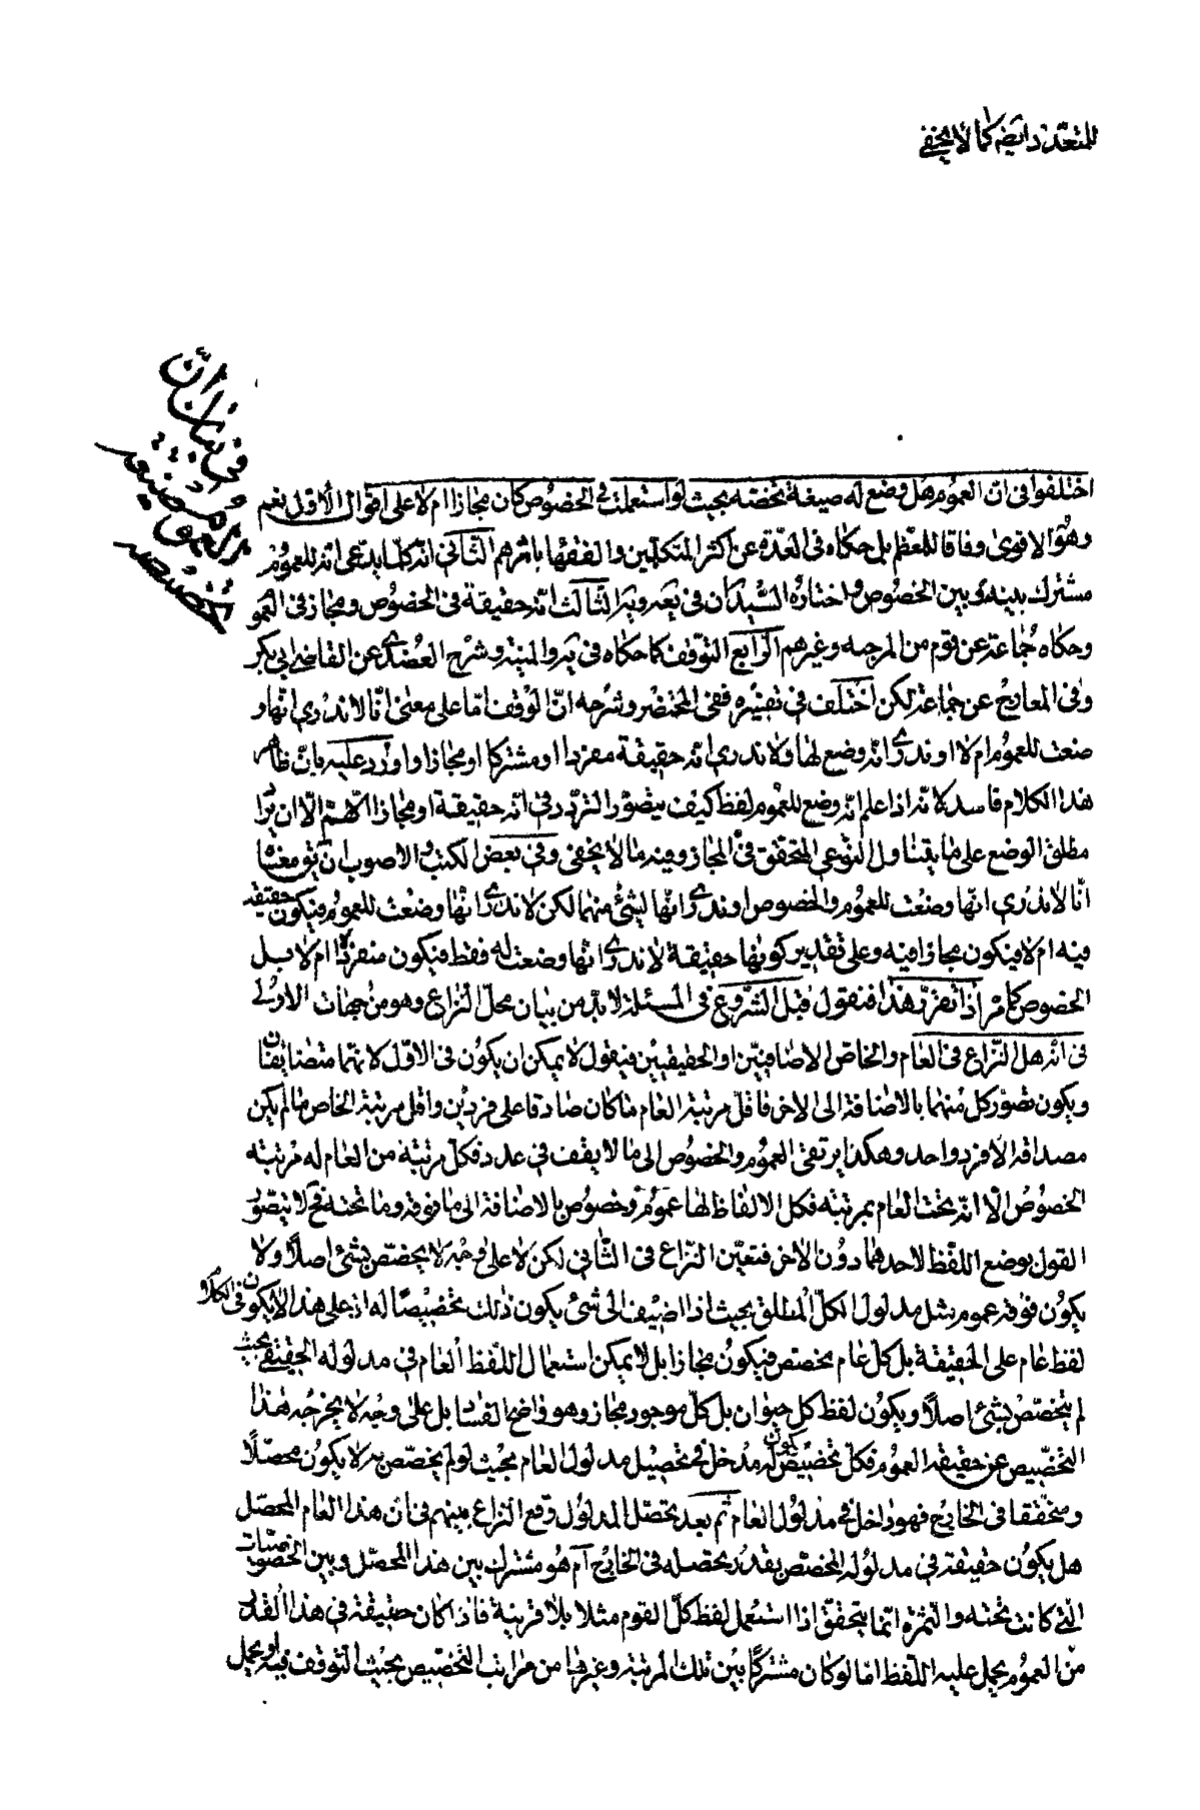 للمتعدد ايضا كما لا يخفى
في بيان أن
العموم له صيغة
تخصه
اختلفوا فى ان العموم هل وضع له صيغة تخصه بحيث لو استعملت في الخصوص كان مجازا ام لا على اقوال الأول نعم
وهو الاقوى وفاقا للمعظم بل حكاه فى العدة عن اكثر المتكلمين والفقهاء باسرهم الثانى انه كلما يدعى انه للعموم
مشترك بينه وبين الخصوص واختاره السيدان في يعه ويه الثالث انه حقيقة فى الخصوص ومجاز فى العمو
وحكاه جماعة عن قوم من المرجئه وغيرهم الرابع التوقف كما حكاه فى يه والمنية وشرح العضدى عن القاضى ابي بكر
وفى المعارج عن جماعة لكن اختلف في تفسيره ففى المختصر وشرحه ان الوقف اما على معنى انا لا ندرى انها و
ضعت للعموم ام لا او ندرى انه وضع لها ولا ندرى انه حقيقة مفردا او مشتركا او مجازا واورد عليه بان ظاهر
هذا الكلام فاسد لانه اذا علم انه وضع للعموم لفظ كيف يتصور التردد في انه حقيقة او مجاز اللهم الا ان يرا
مطلق الوضع على ما يتناول النوعى المتحقق في المجاز وفيه ما لا يخفى وفى بعض الكتب والاصوب ان يق معناه
انا لا ندرى انها وضعت للعموم والخصوص او ندرى انها لشئ منهما لكن لا ندرى انها وضعت للعموم فيكون حقيقة
فيه ام لا فيكون مجازا فيه وعلى تقدير كونها حقيقة لا ندرى انها وضعت له فقط فيكون منفردا ام لا بل
الخصوص كما مر اذا تقرر هذا فنقول قبل الشروع في المسئلة لا بد من بيان محل النزاع وهو من جهات الاولى
فى انه هل النزاع فى العام والخاص الاضافيين او الحقيقيين فنقول لا يمكن ان يكون فى الاول لانهما متضائفان
ويكون تصور كل منهما بالاضافة الى الاخر فاقل مرتبة العام ما كان صادقا على فردين واقل مرتبة الخاص ما لم يكن
مصداقه الا فرد واحد وهكذا يرتقى العموم والخصوص الى ما لا يقف في عدد فكل مرتبة من العام له مرتبة
الخصوص الا انه تحت العام بمرتبة فكل الالفاظ لها عموم وخصوص بالاضافة الى ما فوقه وما تحته فح لا يتصور
القول بوضع اللفظ لاحدهما دون الاخر فتعين النزاع فى الثاني لكن لا على وجه لا يختص بشئ اصلا ولا
يكون فوقه عموم مثل مدلول الكل المطلق بحيث اذا اضيف الى شئ يكون ذلك تخصيصا له اذ على هذا لا يكون فى الكلام
لفظ عام على الحقيقة بل كل عام مختص فيكون مجازا بل لا يمكن استعمال اللفظ العام في مدلوله الحقيقى بحيث
لم يختص بشئ اصلا ويكون لفظ كل حيوان بل كل موجود مجاز وهو واضح الفساد بل على وجه لا يخرجه هذا
التخصيص عن حقيقة العموم فكل تخصيص يكون له مدخل في تحصيل مدلول العام بحيث لو لم يخصص به لا يكون محصلا
ومحققا فى الخارج فهو داخل في مدلول العام ثم بعد تحصل المدلول وقع النزاع بينهم فى ان هذا العام المحصل
هل يكون حقيقة في مدلوله المختص بقدر تحصله فى الخارج ام هو مشترك بين هذا المحصل وبين الخصوصيات
التى كانت تحته والثمرة انما يتحقق اذا استعمل لفظ كل القوم مثلا بلا قرينة فاذا كان حقيقة في هذا القدر
من العموم يحمل عليه اللفظ اما لو كان مشتركا بين تلك المرتبة وغيرها من مراتب التخصيص يجب التوقف فيه او يحمل